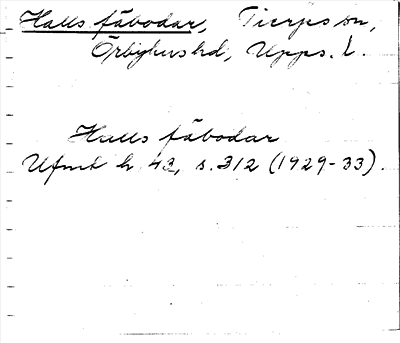 Halls fäbodar, Tierps sn,
Örbyhus hd, Upps. l.
Halls fäbodar
Ufmt h 43, s. 312 (1929-33).